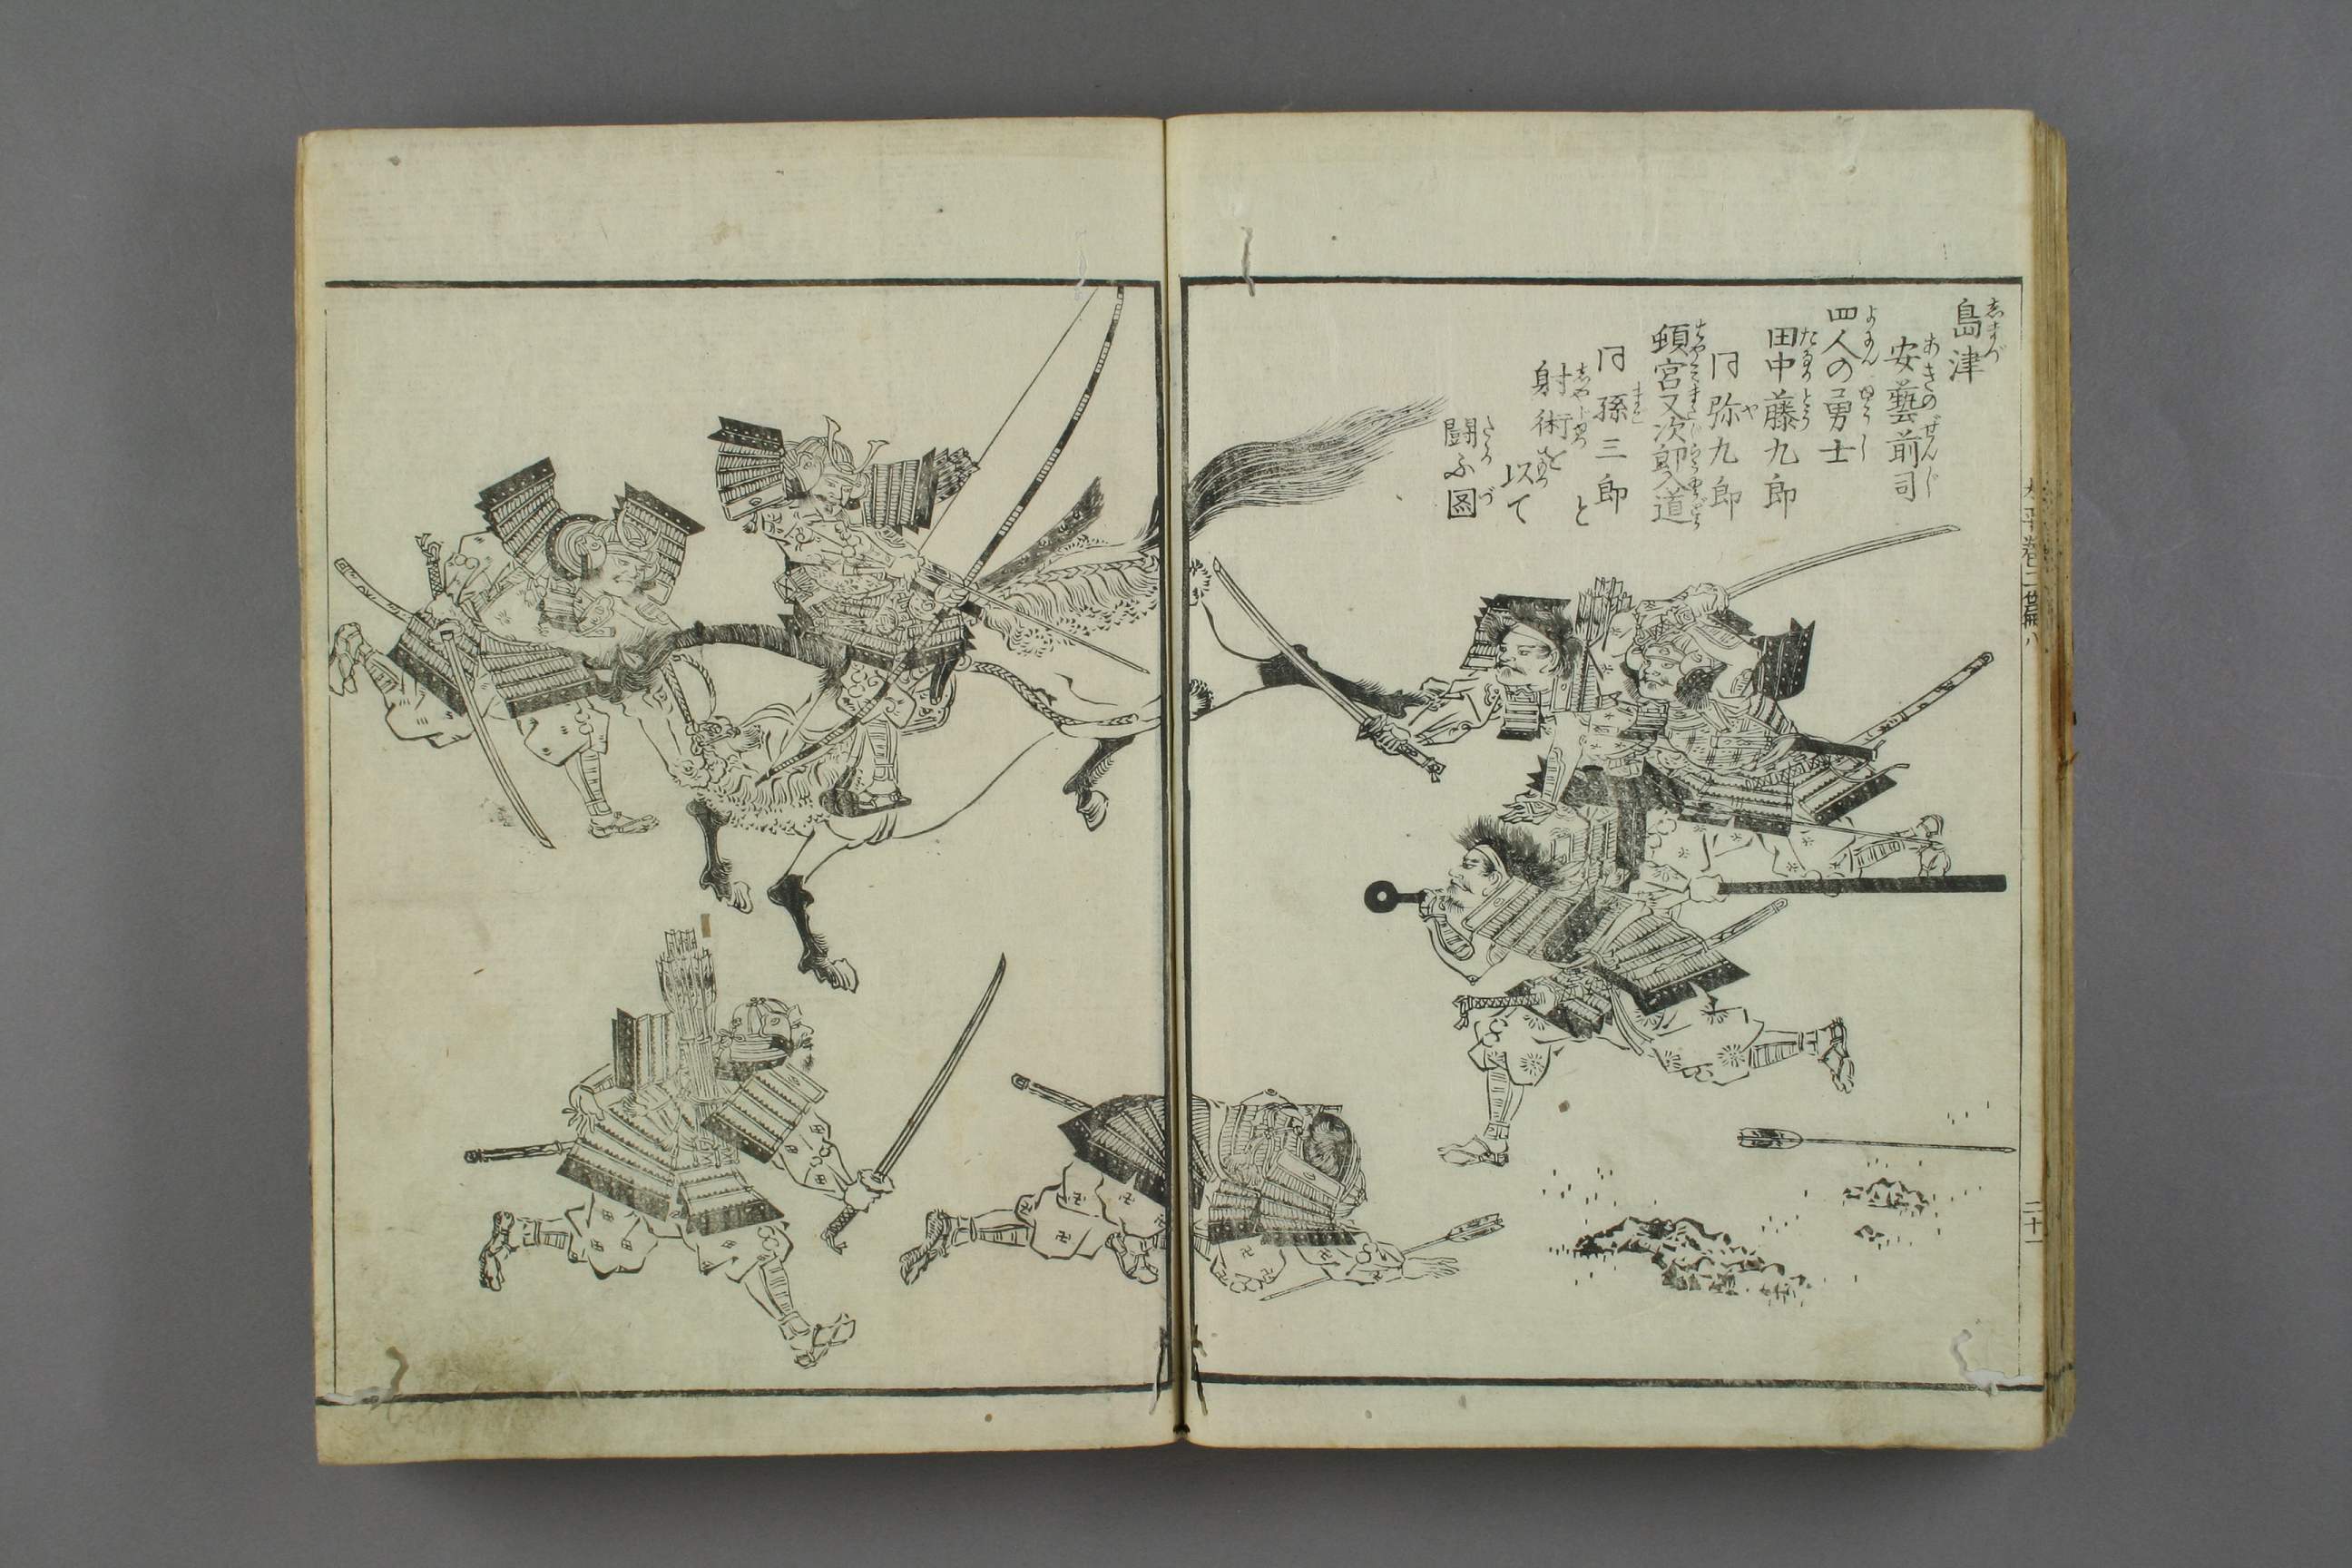 島津
安藝前司
四人の勇士
田中藤九郎
同弥九郎
頓宮又次郎入道
同孫三郎
と
射術を
以て
闘ふ図
二十一